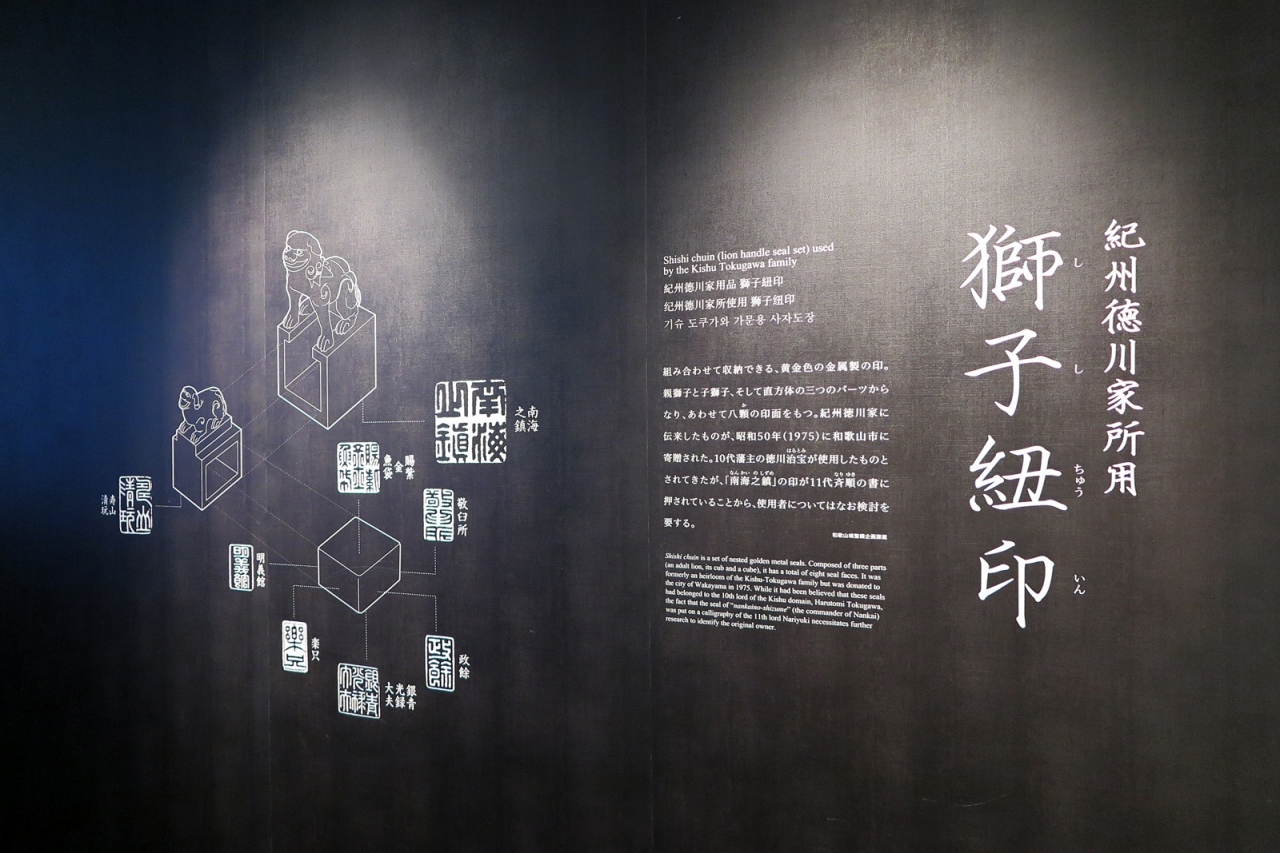 紀州徳川家所用
獅子紐印
し
し
ちゅう
いん
Shishi chuin (lion handle seal set) used
by the Kishu Tokugawa family
紀州德川家用品 獅子紐印
纪州德川家所使用 狮子纽印
기슈 도쿠가와 가문용 사자도장
組み合わせて収納できる、黄金色の金属製の印。
親獅子と子獅子、そして直方体の三つのパーツから
なり、あわせて八顆の印面をもつ。紀州徳川家に
伝来したものが、昭和50年（1975）に和歌山市に
寄贈された。10代藩主の徳川治宝が使用したものと
されてきたが、「南海之鎮」の印が11代斉順の書に
押されていることから、使用者についてはなお検討を
要する。
和歌山城整備企画課蔵
Shishi chuin is a set of nested golden metal seals. Composed of three parts
(an adult lion, its cub and a cube), it has a total of eight seal faces. It was
formerly an heirloom of the Kishu-Tokugawa family but was donated to
the city of Wakayama in 1975. While it had been believed that these seals
had belonged to the 10th lord of the Kishu domain, Harutomi Tokugawa,
the fact that the seal of "nankaino-shizume" (the commander of Nankai)
was put on a calligraphy of the 11th lord Nariyuki necessitates further
research to identify the original owner.
南海
之鎮
賜紫
金
魚袋
敬臼所
寿山
清玩
明義館
楽只
政餘
銀青
光録
大夫